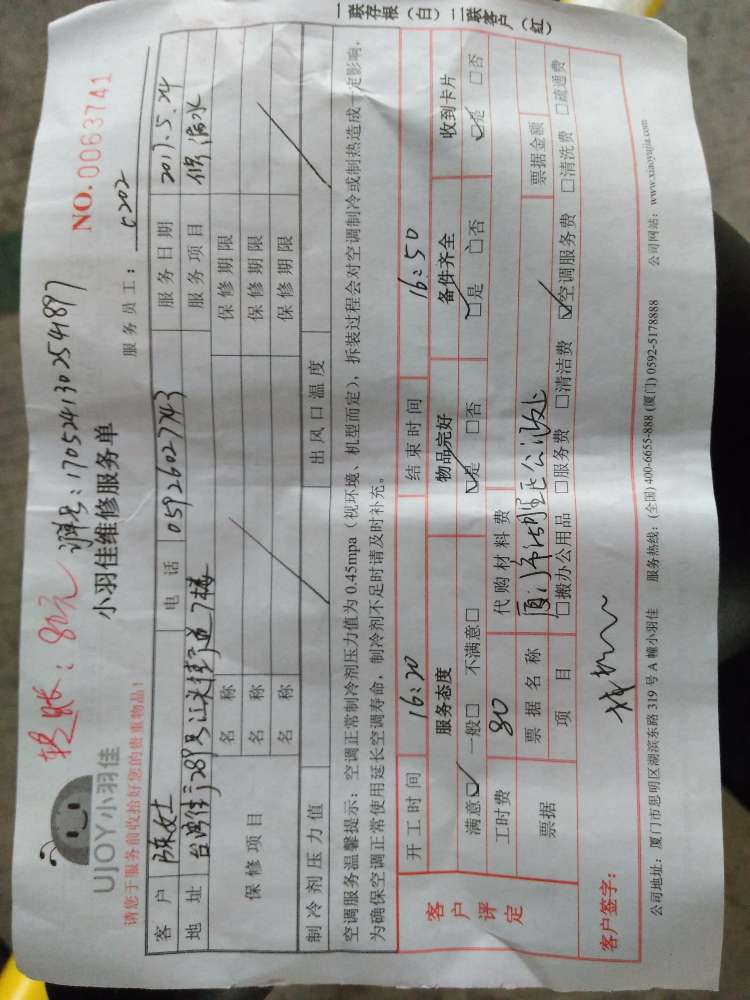 一联存根（白） 二联客户（红）
转账：80元 订单号：170524130254897
NO. 0063741
UJOY小羽佳
小羽佳维修服务单
服务员工： c202
请您于服务前收拾好您的贵重物品！
客户 陈女士 电话 05926027743 服务日期 2017.5.24
地址 台湾街289号江头街道7楼 服务项目 修 漏水
保修项目 名称 保修期限
名称 保修期限
名称 保修期限
制冷剂压力值 出风口温度
空调服务温馨提示：空调正常制冷剂压力值为0.45mpa（视环境、机型而定），拆装过程会对空调制冷或制热造成一定影响，
为确保空调正常使用延长空调寿命，制冷剂不足时请及时补充。
客户评定
开工时间 16:20 结束时间 16:50
服务态度 物品完好 备件齐全 收到卡片
满意☑ 一般□ 不满意□ ☑是 □否 ☑是 □否 ☑是 □否
工时费 80 代购材料费
票据 票据名称 票据金额
项目 □搬办公用品 □服务费 □清洁费 ☑空调服务费 □清洗费 □疏通费
客户签字：
公司地址：厦门市思明区湖滨东路319号A幢小羽佳 服务热线：(全国) 400-6655-888 (厦门) 0592-5178888 公司网站：www.xiaoyujia.com